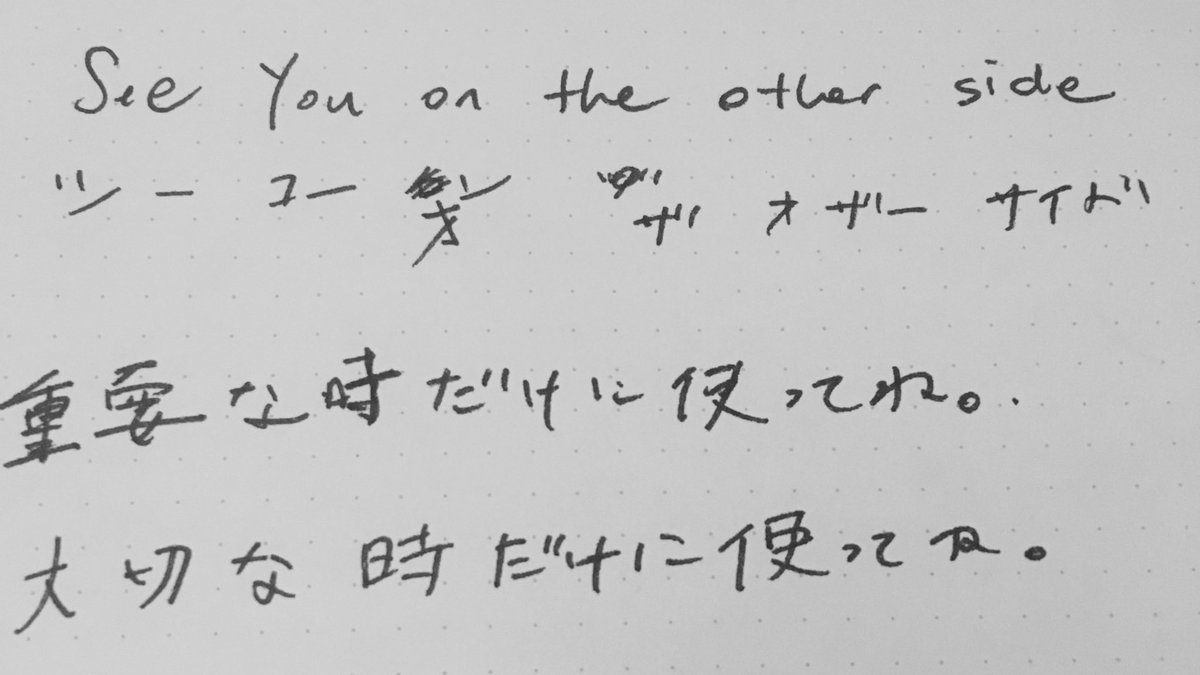 See You on the other side
ツー ユー オン ザ オザー サイド
重要な時だけに使ってね。
大切な時だけに使ってね。